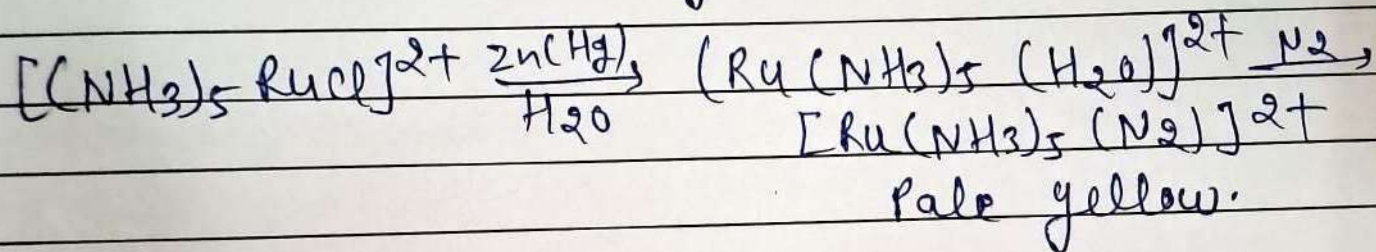 [(NH3)5 RuCl]2+ Zn(Hg), H2O → (Ru(NH3)5 (H2O)]2+ N2 →
[Ru(NH3)5 (N2)]2+
Pale yellow.